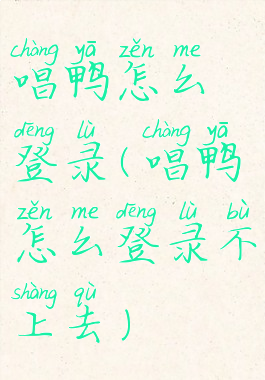 chàng yā zěn me
唱鸭怎么
dēng lù ( chàng yā
登录(唱鸭
zěn me dēng lù bù
怎么登录不
shàng qù
上去)